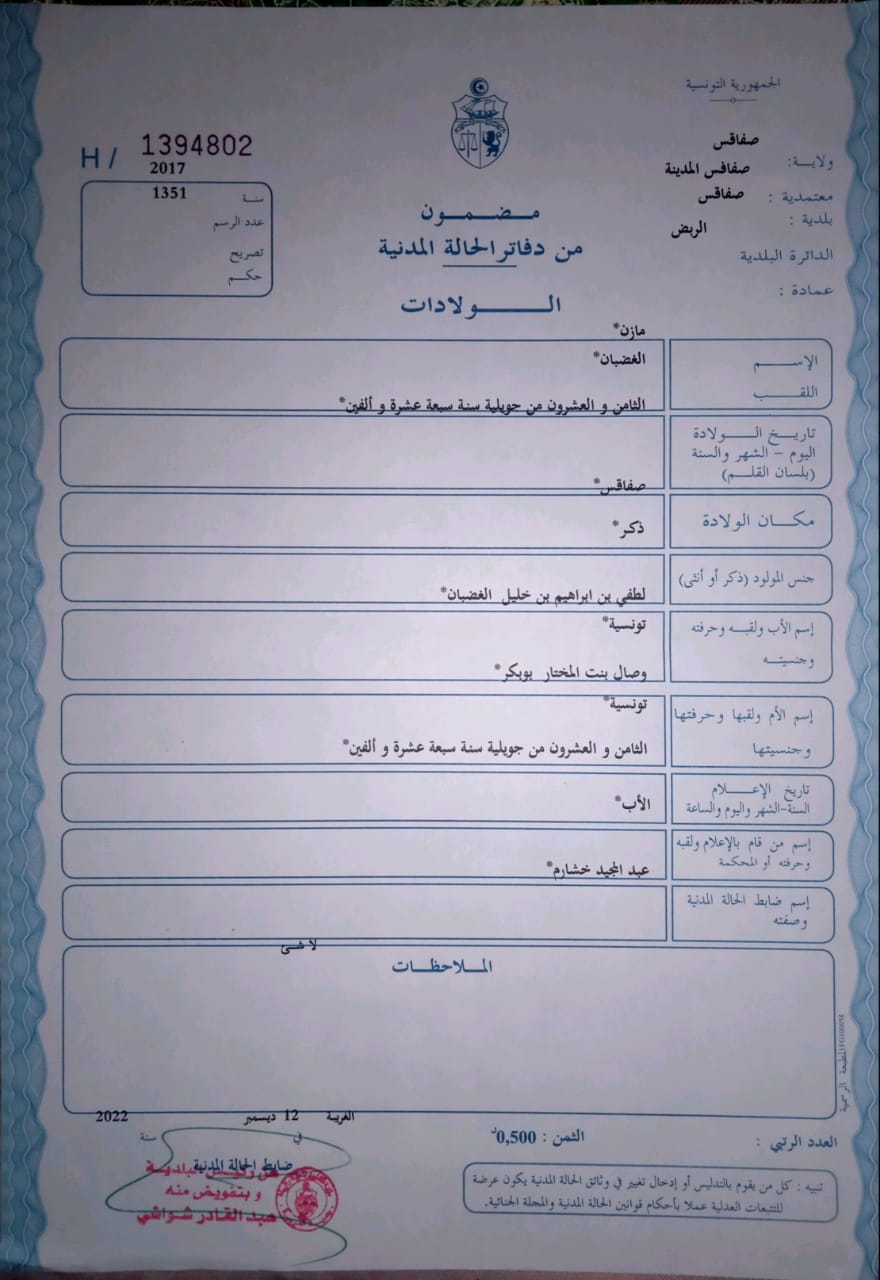 الجمهورية التونسية
H / 1394802
ولاية: صفاقس
معتمدية : صفاقس المدينة
بلدية : صفاقس
الدائرة البلدية الربض
عمادة :
سنة 2017
عدد الرسم 1351
تصريح
حكم
مضمون
من دفاتر الحالة المدنية
الولادات
الإسم مازن*
اللقب الغضبان*
تاريخ الولادة
اليوم - الشهر والسنة
(بلسان القلم)
الثامن و العشرون من جويلية سنة سبعة عشرة و ألفين*
مكان الولادة صفاقس*
جنس المولود (ذكر أو أنثى) ذكر*
إسم الأب ولقبه وحرفته لطفي بن ابراهيم بن خليل الغضبان*
وجنسيته تونسية*
إسم الأم ولقبها وحرفتها وصال بنت المختار بوبكر*
وجنسيتها تونسية*
تاريخ الإعلام
السنة-الشهر واليوم والساعة
الثامن و العشرون من جويلية سنة سبعة عشرة و ألفين*
إسم من قام بالإعلام ولقبه
وحرفته أو المحكمة
الأب*
إسم ضابط الحالة المدنية
وصفته
عبد المجيد خشارم*
الملاحظات
لا شئ
المطبعة الرسمية
العدد الرتبي :
الثمن : 0,500د
الغريبة في 12 ديسمبر سنة 2022
ضابط الحالة المدنية
عن رئيس البلدية
و بتفويض منه
عبد القادر شواشي
تنبيه : كل من يقوم بالتدليس أو إدخال تغيير في وثائق الحالة المدنية يكون عرضة
للتتبعات العدلية عملا بأحكام قوانين الحالة المدنية والمجلة الجنائية.